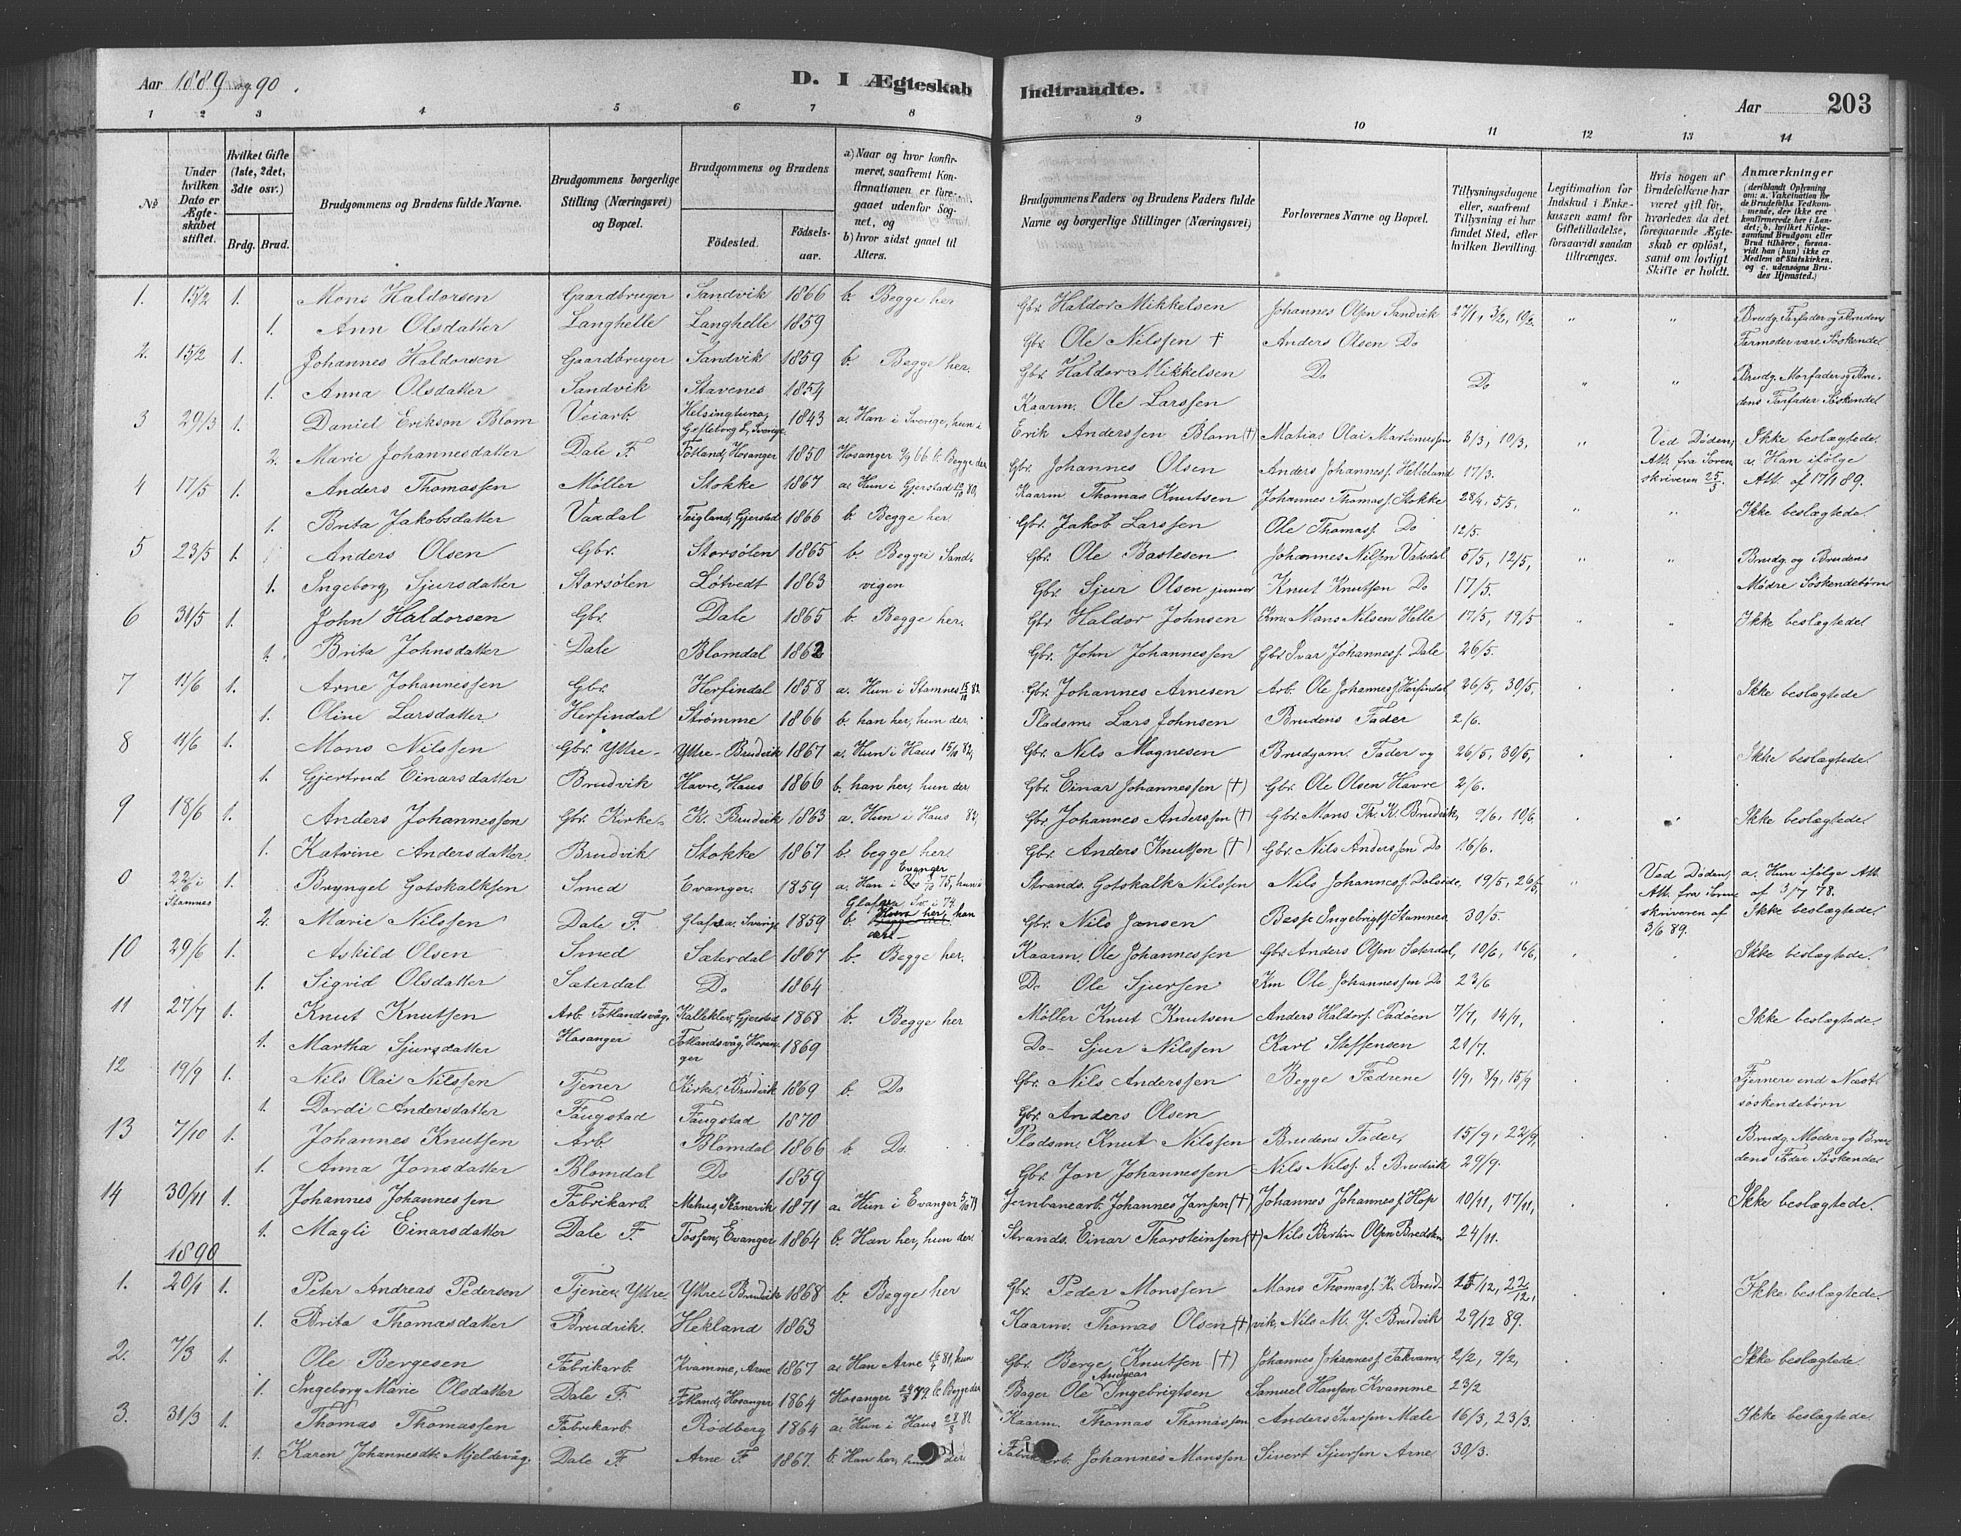 Aar 1889 og 90.
D. I Ægteskab Indtraadte.
Aar 203
1 2 3 4 5 6 7 8 9 10 11 12 13 14
No
Under hvilken Dato er Ægteskabet stiftet.
Hvilket Gifte (1ste, 2det, 3dte osr.)
Brdg. Brud.
Brudgommens og Brudens fulde Navne.
Brudgommens borgerlige Stilling (Næringsvei) og Bopæl.
Brudgommens og Brudens
Fødested. Fødselsaar.
a) Naar og hvor konfirmeret, saafremt Konfirmationen er foregaaet udenfor Sognet, og
b) hvor sidst gaaet til Alters.
Brudgommens Faders og Brudens Faders fulde Navne og borgerlige Stillinger (Næringsvei)
Forlovernes Navne og Bopæl.
Tillysningsdagene eller, saafremt Tillysning ei har fundet Sted, efter hvilken Bevilling.
Legitimation for Indskud i Enkekassen samt for Giftetilladelse, forsaavidt saadan tiltrænges.
Hvis nogen af Brudefolkene har været gift før, hvorledes da det foregaaende Ægteskab er opløst, samt om lovligt Skifte er holdt.
Anmærkninger
(deriblandt Oplysning om: a. Vakcination for de Brudefolks Vedkommende, der ikke ere konfirmerede her i Landet; b. hvilket Kirkesamfund Brudgom eller Brud tilhører, forsaavidt han (hun) ikke er Medlem af Statskirken, og c. udensogns Brudes Hjemsted.)
1. 15/2 1. Mons Haldorsen Gaardbruger Sandvik 1866 b. Begge her Gbr. Haldor Mikkelsen Johannes Olsn Sandvik 27/1, 3/2, 19/2. " " Brudg. Farfader og Brudens
1. Ann Olsdatter Langhelle Langhelle 1859 Gbr. Ole Nilssen † Anders Olsen Do Farmoder vare Søskende
2. 15/2 1. Johannes Haldorsen Gaardbruger Sandvik 1859 b. Begge her. Gbr. Haldor Mikkelsen Do Do " " Brudg. Morfader og Bru-
1. Anna Olsdatter Sandvik Stavenes 1854 Kaarm. Ole Larssen dens Farfader Søskende
3 29/3 1. Daniel Erikson Blom Veiarb. Helsingtuna, Gefleborg L, Sverige 1843 a. Han i Sverige, hun i Erik Anderssen Blom (†) Matias Olai Martinussen 3/3, 10/3, " Ved Døden, Att. fra Sorenskriveren 25/3 Ikke beslægtede
2. Marie Johannesdatter Dale F. Fotland, Hosanger 1850 Hosanger 2/9 66 b. Begge der Gbr. Johannes Olsen Anders Johannesf. Helleland 17/3. a. Han ifølge Att. af 17/1 89.
4 17/5 1. Anders Thomassen Møller Stokke 1867 a. Hun i Gjerstad 10/10 80, Kaarm. Thomas Knutsen Johannes Thomasf. Stokke 28/4, 5/5, " "
1. Brita Jakobsdatter Vaxdal Teigland, Gjerstad 1866 b. Begge her. Gbr. Jakob Larssen Ole Thomasf. Do 12/5. Ikke beslægtede.
5 23/5 1. Anders Olsen Gbr. Storsølen 1865 b. Begge i Sand- Gbr. Ole Bastesen Johannes Nilsen Vaxdal 5/5, 12/5, " " Brudg. og Brudens
1. Ingeborg Sjursdatter Storsølen Løtvedt 1863 vigen Gbr. Sjur Olsen junior Knut Knutsen Do 17/5. Mødre Søskendebørn
6 31/5 1. John Haldorsen Gbr. Dale 1865 b. Begge her. Gbr. Haldor Johnsen Km. Mons Nilsen Helle 17/5, 19/5 Ikke beslægtet
1. Brita Johnsdatter Dale Blomdal 1862 Gbr. John Johannessen Gbr. Ivar Johannesf. Dale 26/5.
7 11/6 1. Arne Johannessen Gbr. Herfindal 1858 a. Hun i Stamnes 15/10 82 Gbr. Johannes Arnesen Arb. Ole Johannesf. Herfindal 26/5, 30/5, Ikke beslægtede
1. Oline Larsdatter Herfindal Strømme 1866 b. han her, hun der. Pladsm. Lars Johnsen Brudens Fader 2/6.
8 11/6 1. Mons Nilssen Gbr. Yttre- Yttre-Brudvik 1867 a. Hun i Haus 15/10 82, Gbr. Nils Magnesen Brudgom. Fader og 26/5, 30/5, Ikke beslægtede.
1. Gjertrud Einarsdatter Brudvik Havre, Haus 1866 b. han her, hun der Gbr. Einar Johannessen (†) Gbr. Ole Olsen Havre 2/6.
9 18/6 1. Anders Johannessen Gbr. Kirke- K. Brudvik 1863 a. Hun i Haus 82, Gbr. Johannes Anderssen (†) Gbr. Mons Th. K. Brudvik, 9/6, 10/6, Ikke beslægtede.
1. Katrine Andersdatter Brudvik Stokke 1867 b. begge her. Gbr. Anders Knutsen (†) Gbr. Nils Anderssen Do 16/6.
0 22/6 i Stamnes 1. Bryngel Gotskalksen Smed Evanger. 1859 a. Han i Evanger 75, hun i Glafsva Sv. i 74. Strands. Gotskalk Nilssen Nils Johannesf. Dalseide 19/5, 26/5 " Ved Døden, Att. fra Sorenskriveren af 3/6 89. a. Hun ifølge Att. af 3/7 78.
2. Marie Nilssen Dale F. Glafsva. Sverige 1859 b. her, han Gbr. Nils Jansen Besse Ingebrigtf. Stamnes 30/5. Ikke beslægtede.
10 29/6 1. Askild Olsen Smed Sæterdal 1867 b. Begge her. Kaarm. Ole Johannessen Gbr. Anders Olsen Sæterdal, 10/6, 16/6, Ikke beslægtede
1. Sigvid Olsdatter Sæterdal Do 1864 Do Ole Sjursen Km Ole Johannessen Do 23/6
11 27/7 1. Knut Knutsen Arb. Fotlandsvåg, Kalleklev, Gjerstad 1868 b. Begge her Møller Knut Knutsen Anders Haldorf. Tadøen 7/7, 14/7, Ikke beslægtede.
1. Martha Sjursdatter Hosanger Fotlandsvåg, Hosanger 1869 Do Sjur Nilssen Karl Steffensen 21/7.
12 19/9 1. Nils Olai Nilssen Tjener Kirke, Brudvik 1869 b. Do Gbr. Nils Anderssen Begge Fædrene 1/9, 8/9, 15/9 Fjernere end Næst-
1. Dordi Andersdatter Faugstad Faugstad 1870 Gbr. Anders Olsen søskendebørn
13 7/10 1. Johannes Knutsen Arb. Blomdal 1866 b. Do. Pladsm. Knut Nilssen Brudens Fader, 15/9, 22/9, Brudg. Moder og Bru-
1. Anna Jonsdatter Blomdal Do 1859 Gbr. Jon Johannessen Nils Nilsf. I. Brudvik 29/9. dens Fader Søskende.
14 30/11 1. Johannes Johannessen Fabrikarb. Mehus, Skånevik 1871 a. Hun i Evanger 5/10 79 Jernbanearb. Johannes Jansen (†) Johannes Johannesf. Hop 10/11, 17/11, Ikke beslægtede
1. Magli Einarsdatter Dale F. Tøssen, Evanger 1864 b. Han her, hun der. Strands. Einar Thorsteinsen (†) Nils Bertin Olsen Bredsten 24/11.
1890
1. 20/1 1. Peter Andreas Pedersen Tjener Yttre Yttre-Brudvik 1868 b. Begge her Gbr. Peder Monssen Mons Thomasf. K. Brud- 15/12, 22/12, Ikke beslægtede.
1. Brita Thomasdatter Brudvik. Hekland 1863 Kaarm. Thomas Olsen (†) vik, Nils M. Y. Brudvik 29/12 89.
2. 7/3 1. Ole Bergesen Fabrikarb. Kvamme, Arne 1867 a. Han Arne 81, hun Gbr. Berge Knutsen (†) Johannes Johannesf. Takvam 2/2, 9/2, Ikke beslægtede.
1. Ingeborg Marie Olsdatter Dale F. Fotland, Hosanger 1864 Hosanger 79 b. Begge der Bager Ole Andreas Ingebrigtsen Samuel Hansen Kvamme 23/2
3. 31/3 1. Thomas Thomassen Fabrikarb. Rødberg 1864 a. Hun i Haus 28/8 81 Kaarm. Thomas Thomassen Anders Ivarsen Mæle 16/3, 23/3. Ikke beslægtede
1. Karen Johannesdtr. Mjeldevåg Dale F. Arne F. 1867. b. Han her, hun der Fabrikarb. Johannes Monssen Sivert Sjursen Arne 30/3.